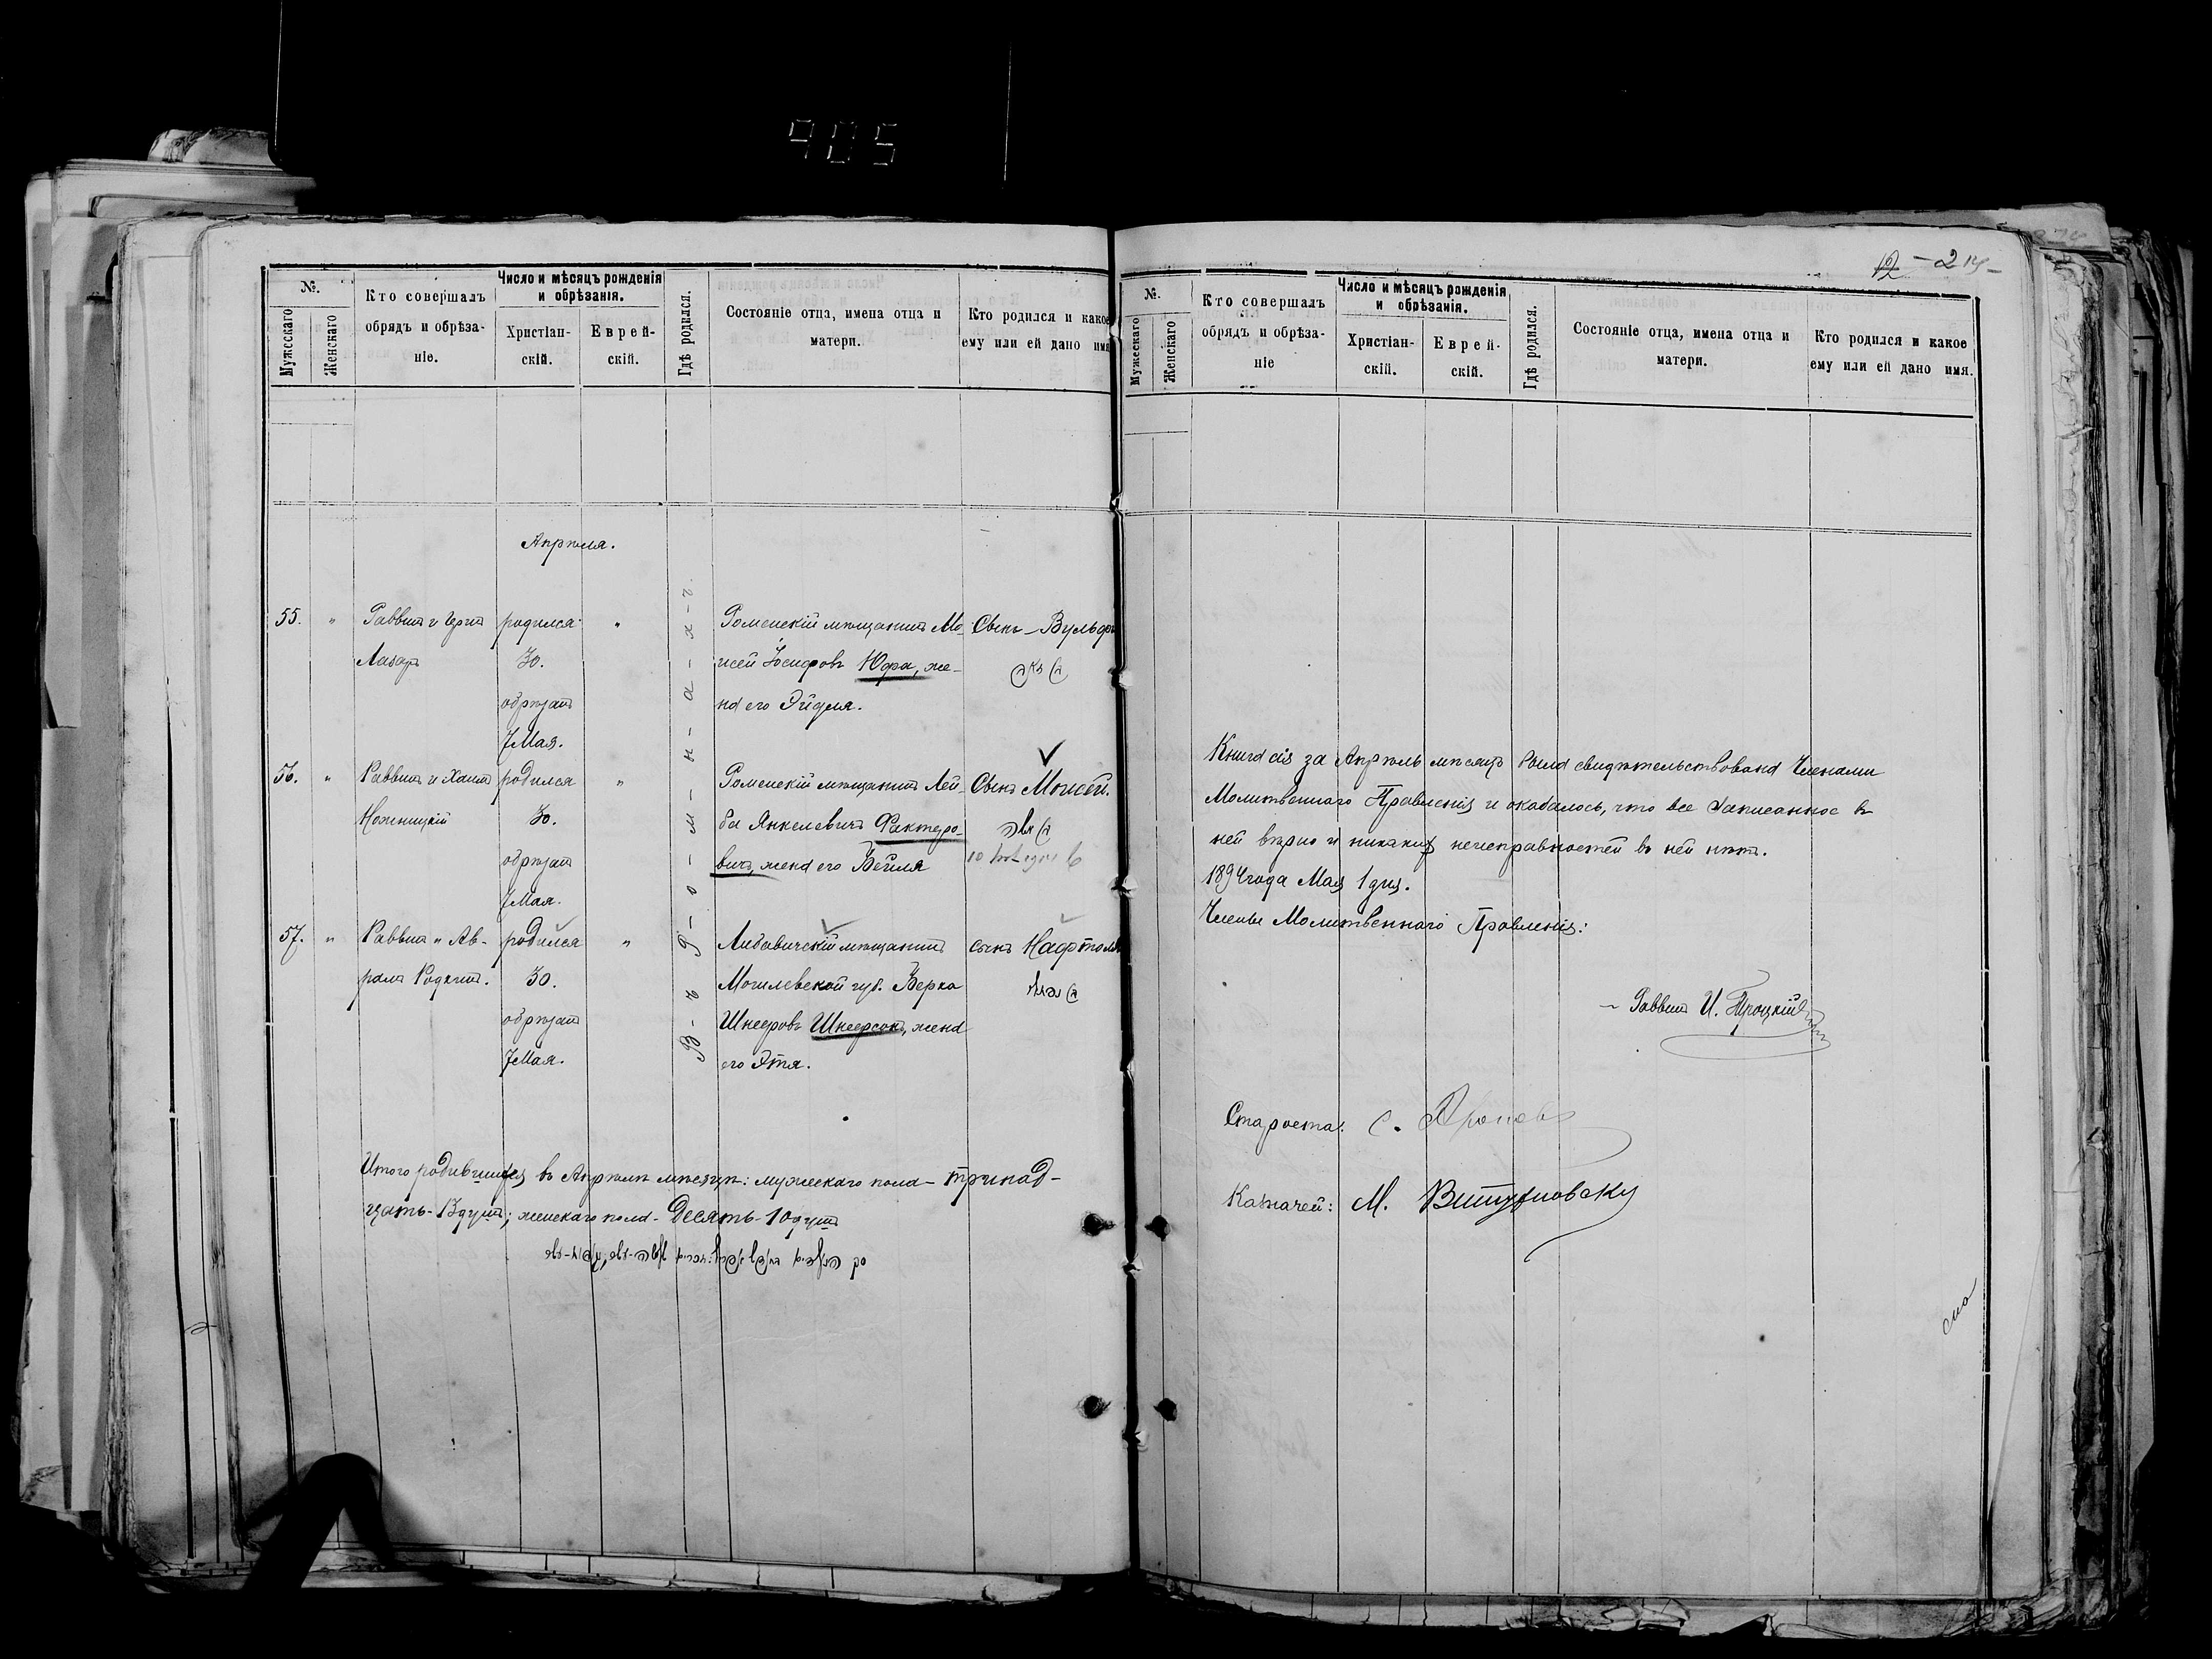 905
№.
Мужескаго
Женскаго
Кто совершалъ
обрядъ и обрѣза-
ніе.
Число и мѣсяцъ рожденія
и обрѣзанія.
Христіан-
скій.
Еврей-
скій.
Гдѣ родился.
Состояніе отца, имена отца и
матери.
Кто родился и какое
ему или ей дано имя
Апрѣля.
55. " Раввинъ и
Лазарь
родился "
30.
обрѣзанъ
7 Мая.
Роменскій мѣщанинъ Мо-
исей Іосифовъ Юфа, же-
на его Эйдля.
Сынъ – Вульфъ
56. " Раввинъ и Хаимъ
Ноженицкій
родился "
30.
обрѣзанъ
7 Мая.
Роменскій мѣщанинъ Лей-
ба Янкелевичъ Фактеро-
вичъ, жена его Бейля
Сынъ Моисей.
57. " Раввинъ " Ав-
рамъ Родкинъ.
родился "
30.
обрѣзанъ
7 Мая.
Любавичскій мѣщанинъ
Могилевской губ. Берка
Шнееровъ Шнеерсонъ, жена
его Этя.
сынъ Нафтоли
Итого родившихся въ Апрѣлѣ мѣсяцѣ: мужескаго пола – тринад-
цать – 13 душъ; женскаго пола – десять – 10 душъ
12 – 214 –
№.
Мужескаго
Женскаго
Кто совершалъ
обрядъ и обрѣза-
ніе
Число и мѣсяцъ рожденія
и обрѣзанія.
Христіан-
скій.
Еврей-
скій.
Гдѣ родился.
Состояніе отца, имена отца и
матери.
Кто родился и какое
ему или ей дано имя.
Книга сія за Апрѣль мѣсяцъ была свидѣтельствована Членами
Молитвеннаго Правленія и оказалось, что все записанное въ
ней вѣрно и никакихъ неисправностей въ ней нѣтъ.
1894 года Мая 1 дня.
Члены Молитвеннаго Правленія:
Раввинъ И. Троцкій
Староста: С. Ароновъ
Казначей: М.